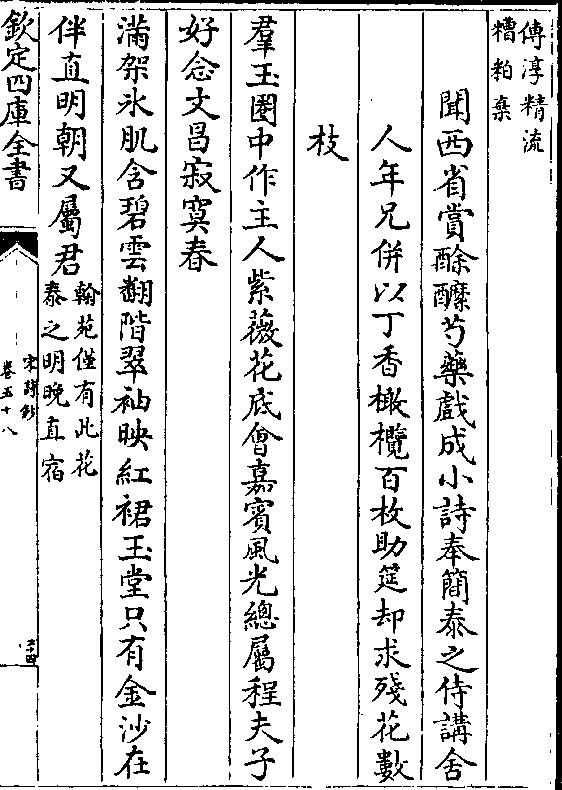 傳淳精流
糟粕棄
聞西省賞酴醾芍藥戲成小詩奉簡泰之侍講舍
人年兄併以丁香橄欖百枚助筵却求殘花數
枝
羣玉圃中作主人紫薇花底㑹嘉賓風光緫屬程夫子
好念文昌寂寞春
滿架氷肌含碧雲翻階翠袖映紅裙玉堂只有金沙在
伴直明朝又屬君
翰苑僅有此花
泰之明晚直宿
欽定四庫全書
宋詩鈔
卷五十八